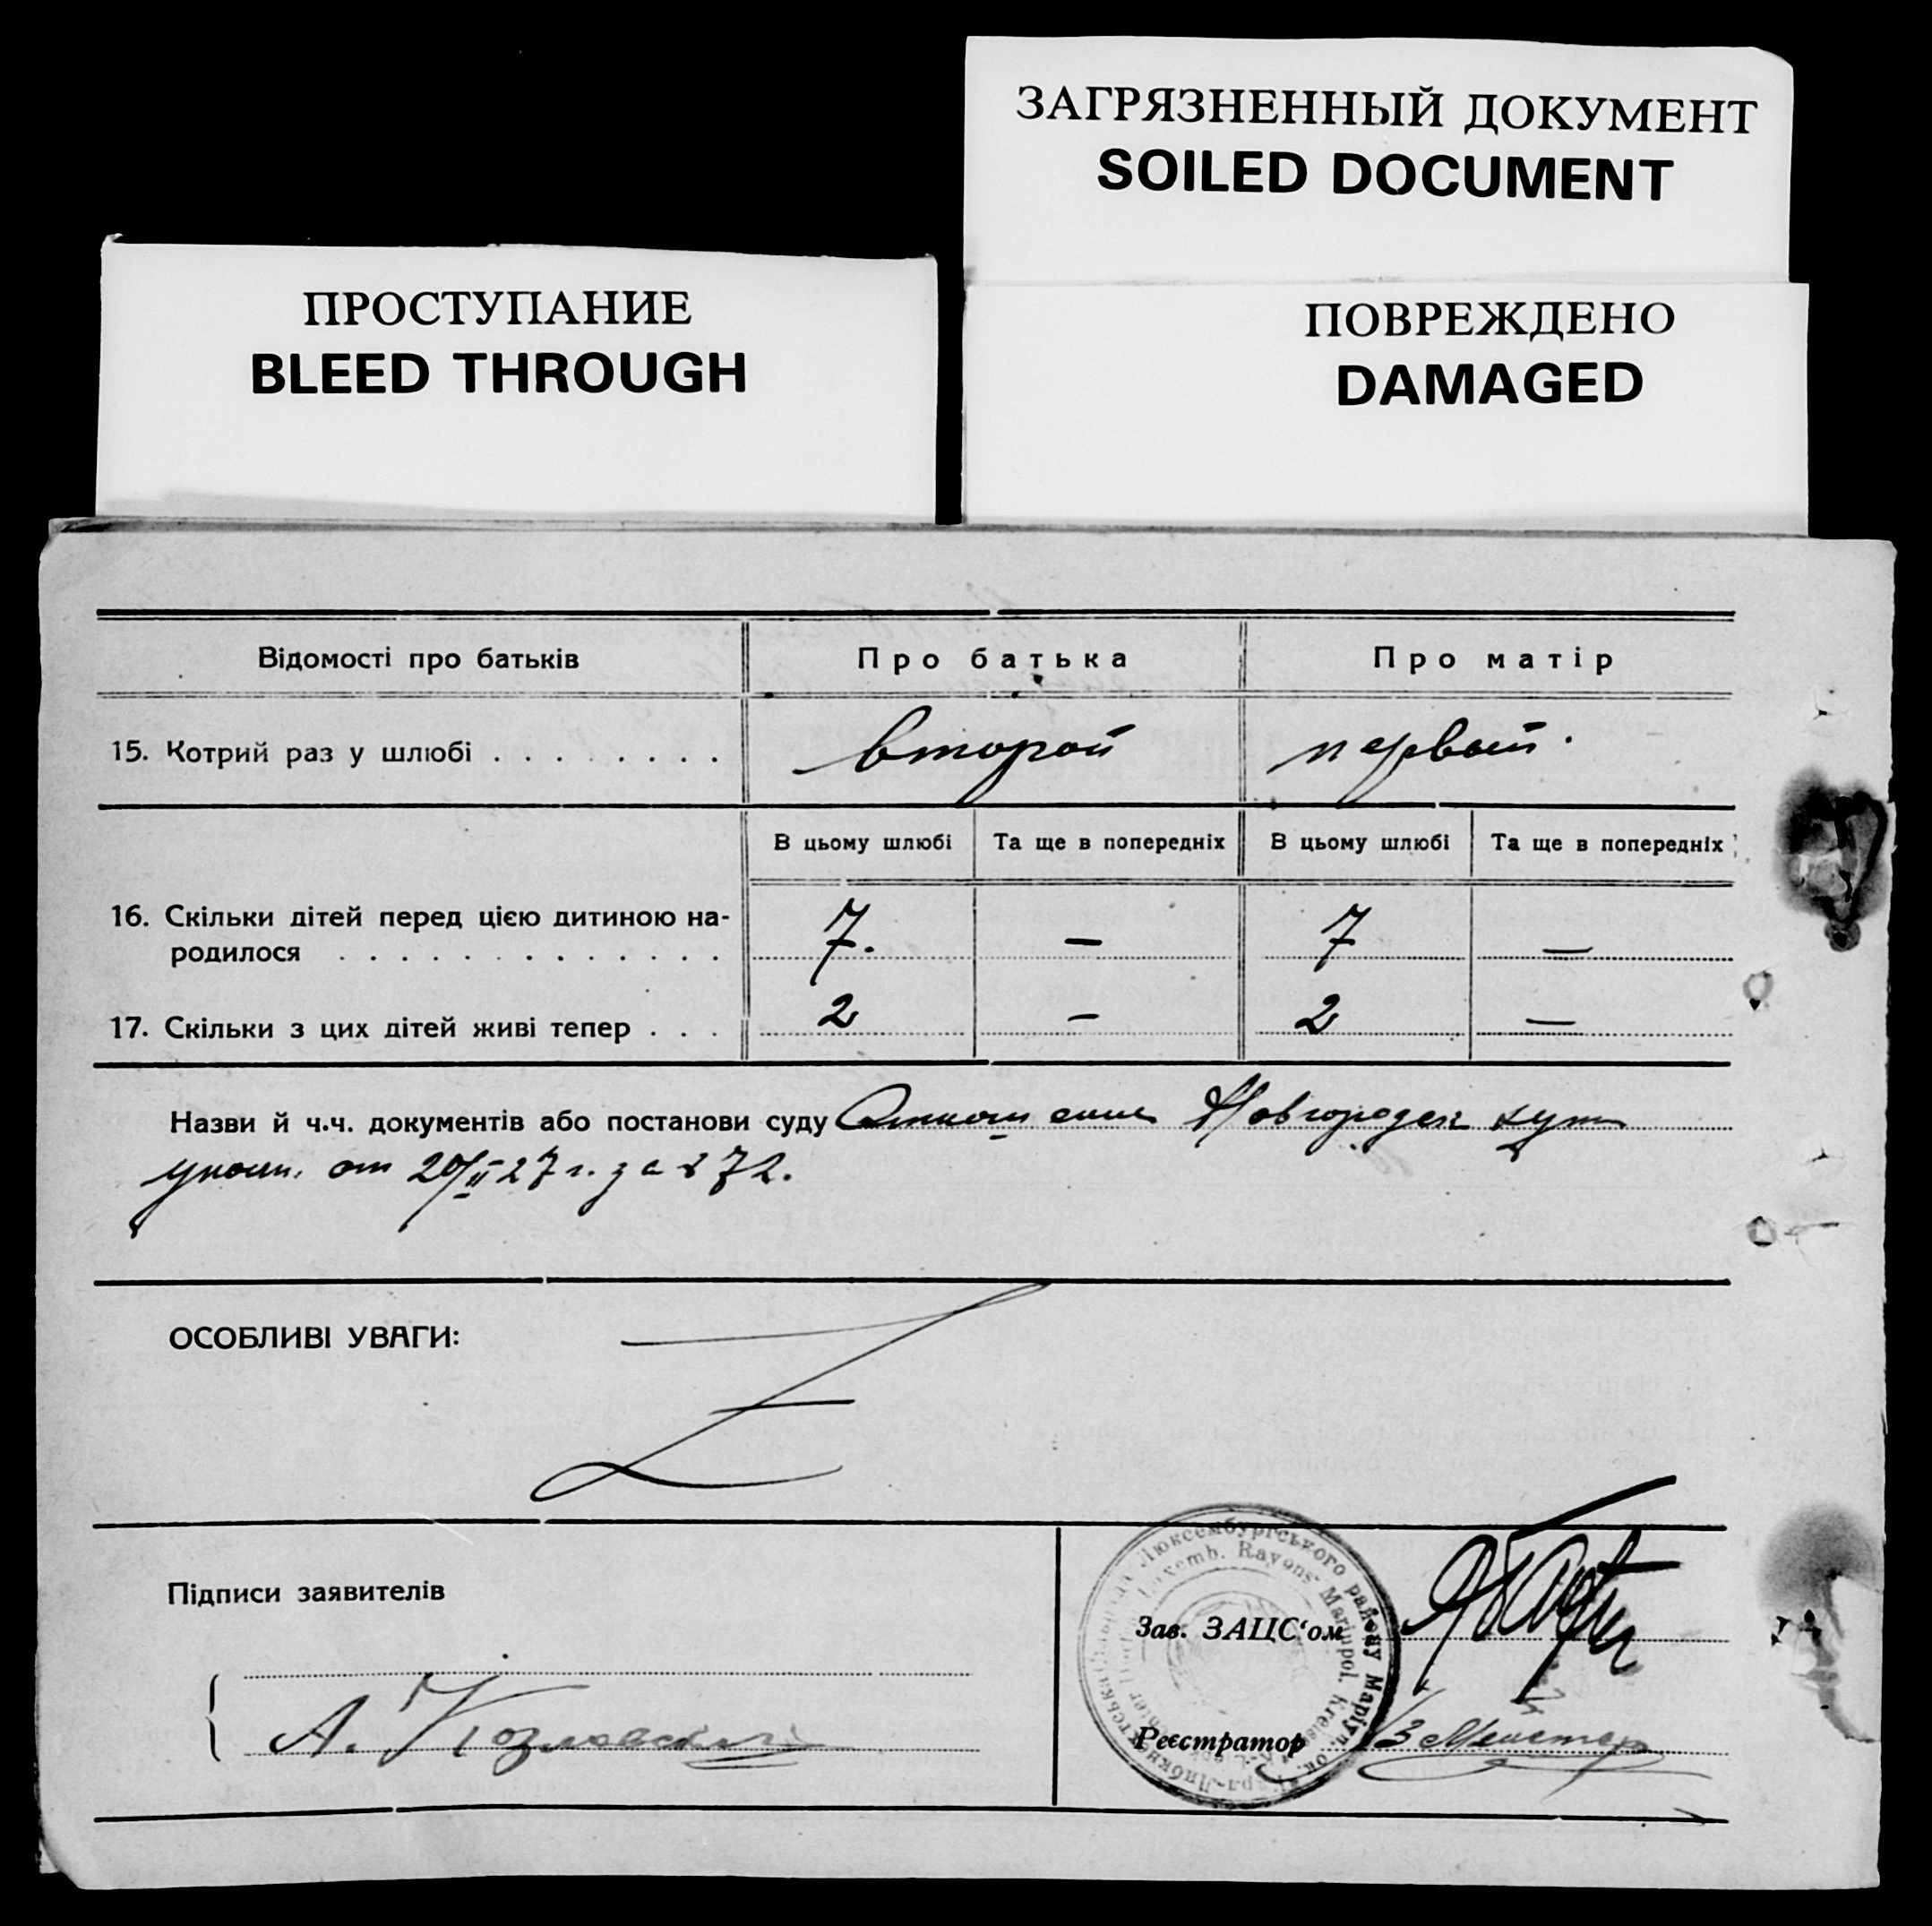 ЗАГРЯЗНЕННЫЙ ДОКУМЕНТ
SOILED DOCUMENT
ПРОСТУПАНИЕ
BLEED THROUGH
ПОВРЕЖДЕНО
DAMAGED
Відомості про батьків Про батька Про матір
15. Котрий раз у шлюбі второй первый.
В цьому шлюбі Та ще в попередніх В цьому шлюбі Та ще в попередніх
16. Скільки дітей перед цією дитиною на-
родилося 7. — 7 —
17. Скільки з цих дітей живі тепер 2 — 2 —
Назви й ч.ч. документів або постанови суду Отношение Новгородск
от 20/II 27 г. за № 72.
ОСОБЛИВІ УВАГИ:
Підписи заявителів
Люксембургського району Маріуп. ок.
Luxemb. Rayons Mariupol. Kreis
Зав. ЗАЦС‘ом
А. Козловский
Реєстратор